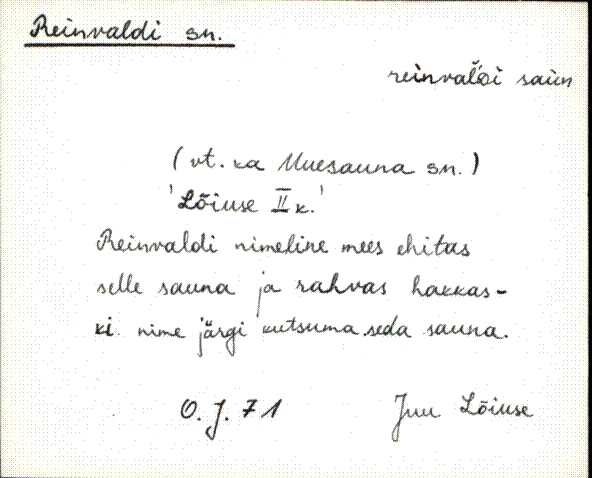 Reinvaldi sn.
reinval̆δi saun
(vt. ka Uuesauna sn.)
'Lõiuse II k.'
Reinvaldi nimeline mees ehitas
selle sauna ja rahvas hakkas-
ki nime järgi kutsuma seda sauna.
O. J. 71 Juu Lõiuse